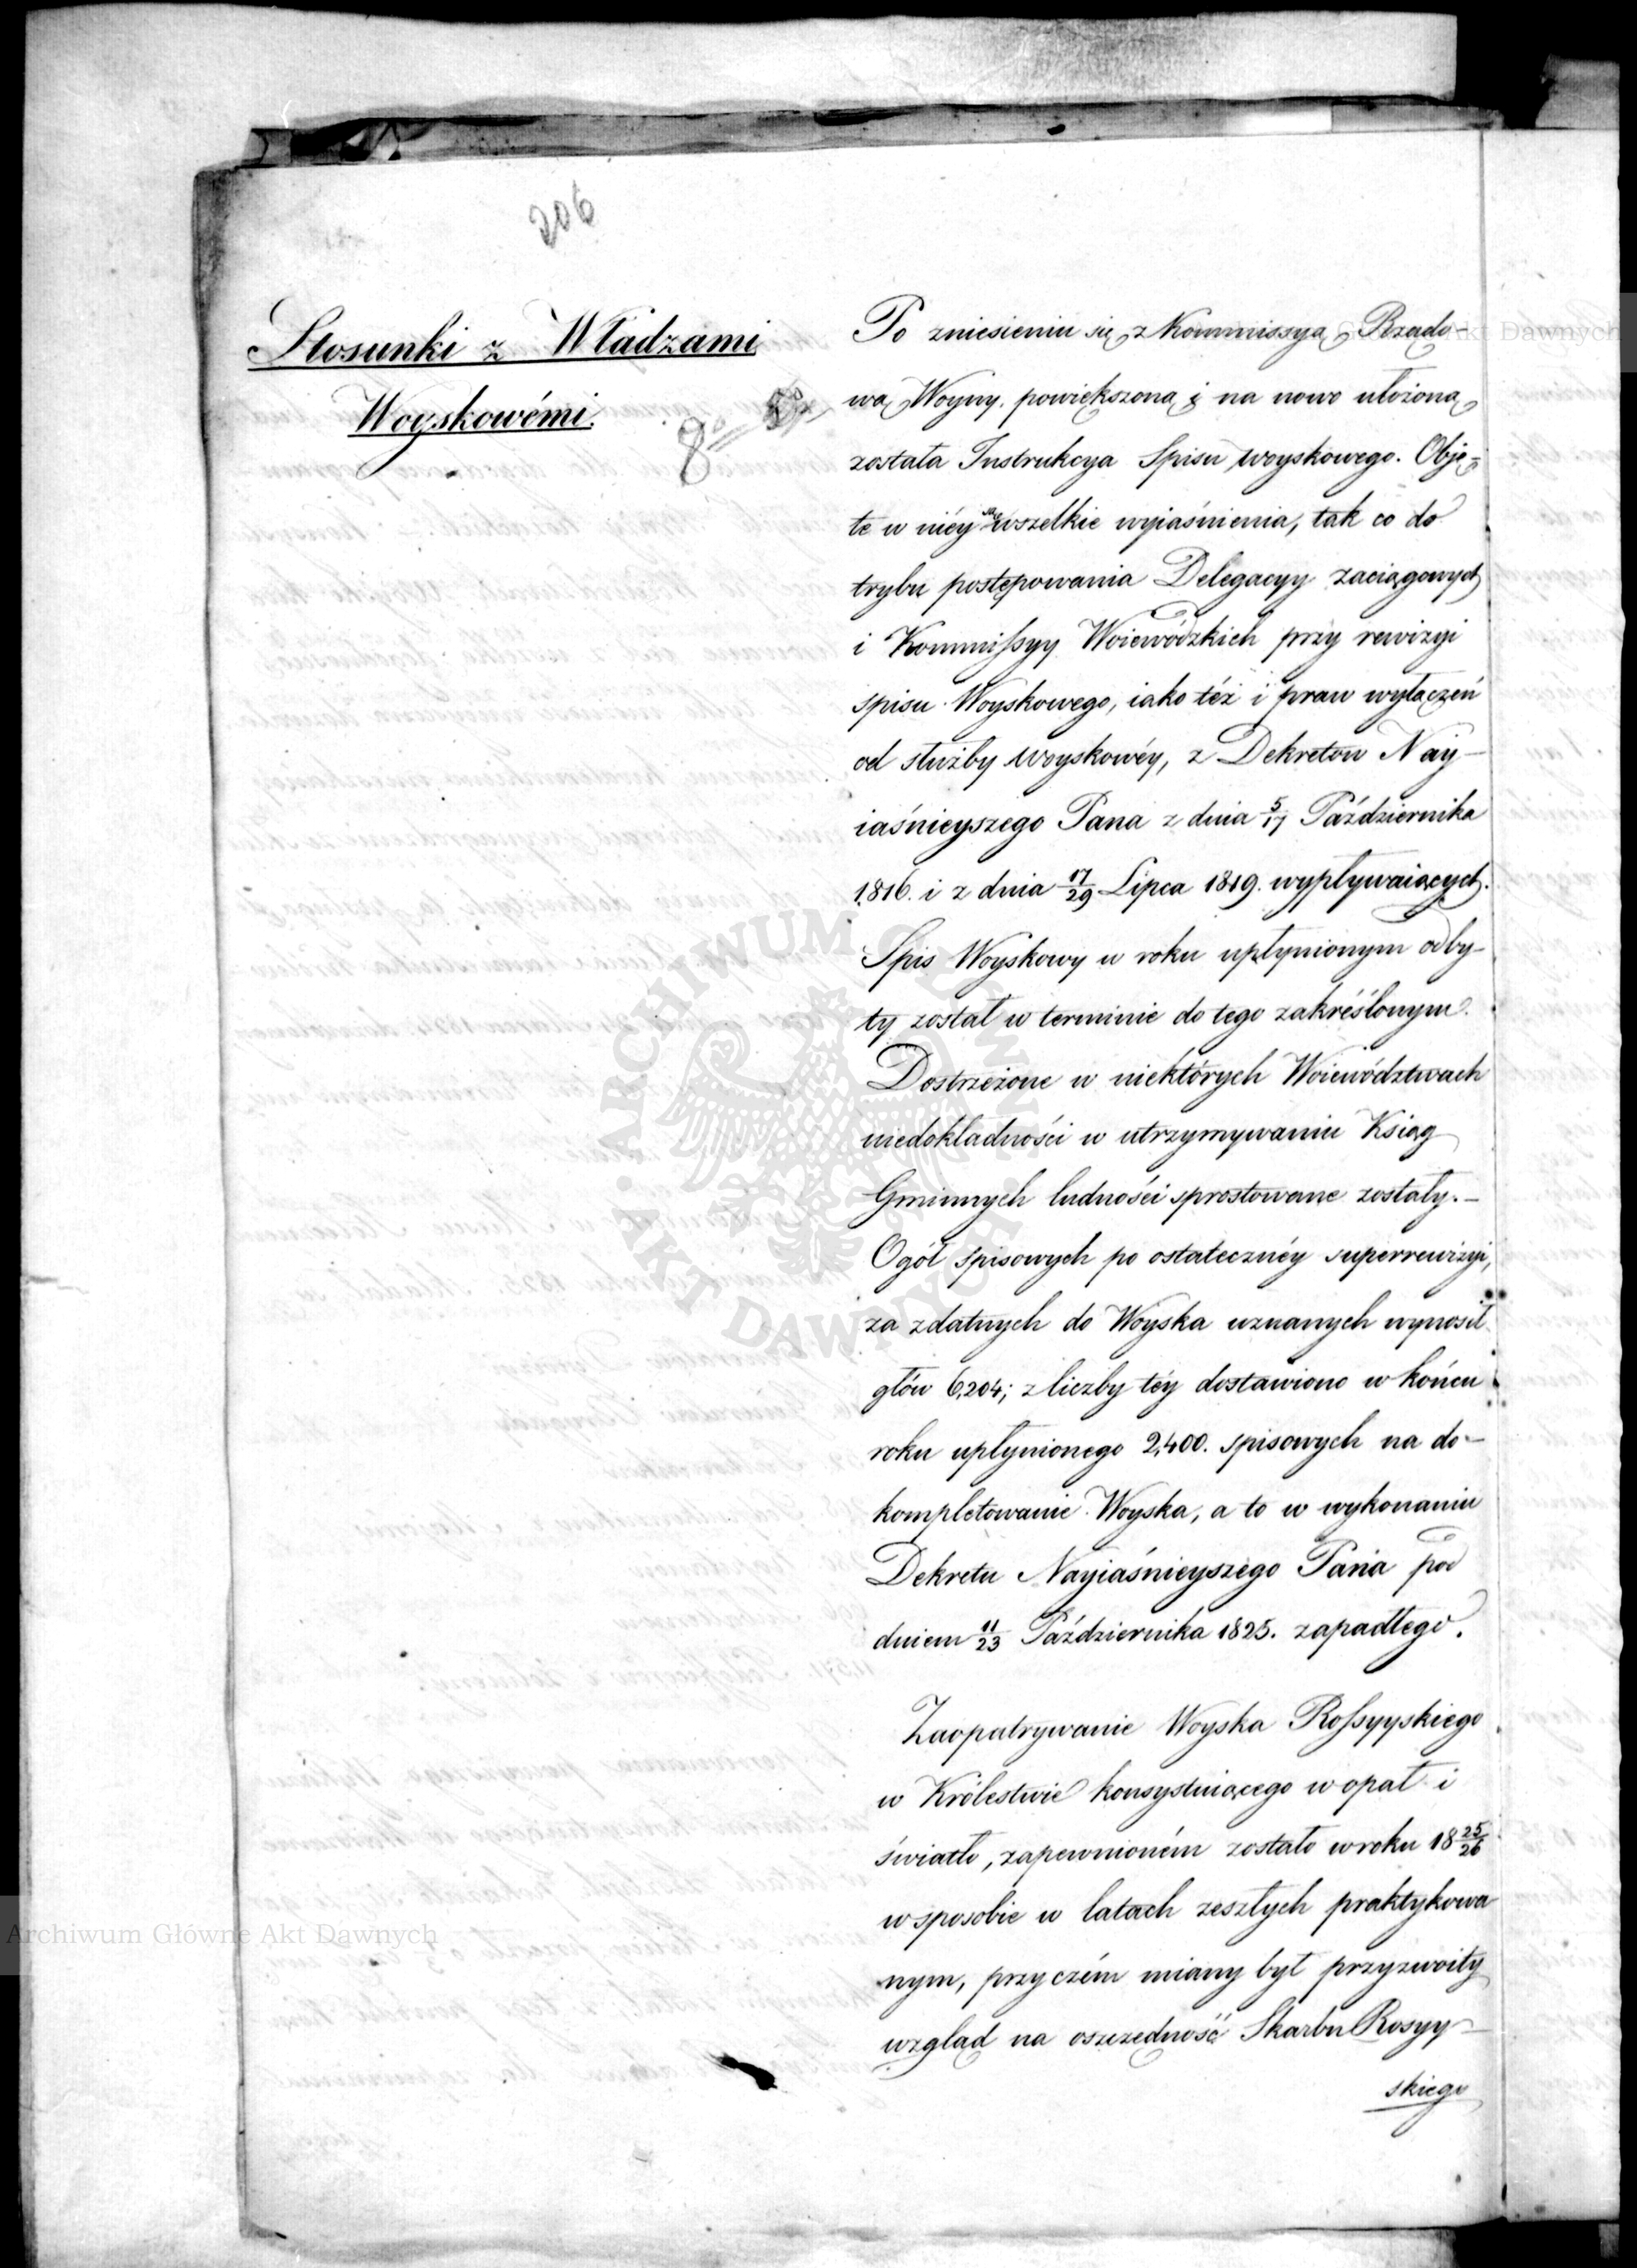 206
Stosunki z Władzami
Woyskowémi.
8º
Po zniesieniu się z Kommissyą Rządo-
wą Woyny, powiększoną i na nowo ułożoną
została Instrukcya Spisu woyskowego. Obję-
te w niéy są wszelkie wyiaśnienia, tak co do
trybu postępowania Delegacyy zaciągowych
i Kommissyy Woiewódzkich przy rewizyi
spisu Woyskowego, iako téż i praw wyłączeń
od służby woyskowéy, z Dekretow Nay-
iaśnieyszego Pana z dnia 5/17 Października
1816. i z dnia 17/29 Lipca 1819. wypływaiących.
Spis Woyskowy w roku upłynionym odby-
ty został w terminie do tego zakréślonym.
Dostrzeżone w niektórych Woiewództwach
niedokładności w utrzymywaniu Ksiąg
Gminnych ludności sprostowane zostały.-
Ogół spisowych po ostatecznéy superrewizyi,
za zdatnych do Woyska uznanych wynosił
głów 6,204; z liczby téy dostawiono w końcu
roku upłynionego 2,400. spisowych na do-
kompletowanie Woyska, a to w wykonaniu
Dekretu Nayiaśnieyszego Pana pod
dniem 11/23 Października 1825. zapadłego.
Zaopatrywanie Woyska Rossyyskiego
w Królestwie konsystuiącego w opał i
światło, zapewnioném zostało w roku 18 25/26
w sposobie w latach zeszłych praktykowa
nym, przyczém miany był przyzwoity
wzgląd na oszczędność Skarbu Rosyy-
skiego
Archiwum Główne Akt Dawnych
ARCHIWUM GŁÓWNE AKT DAWNYCH